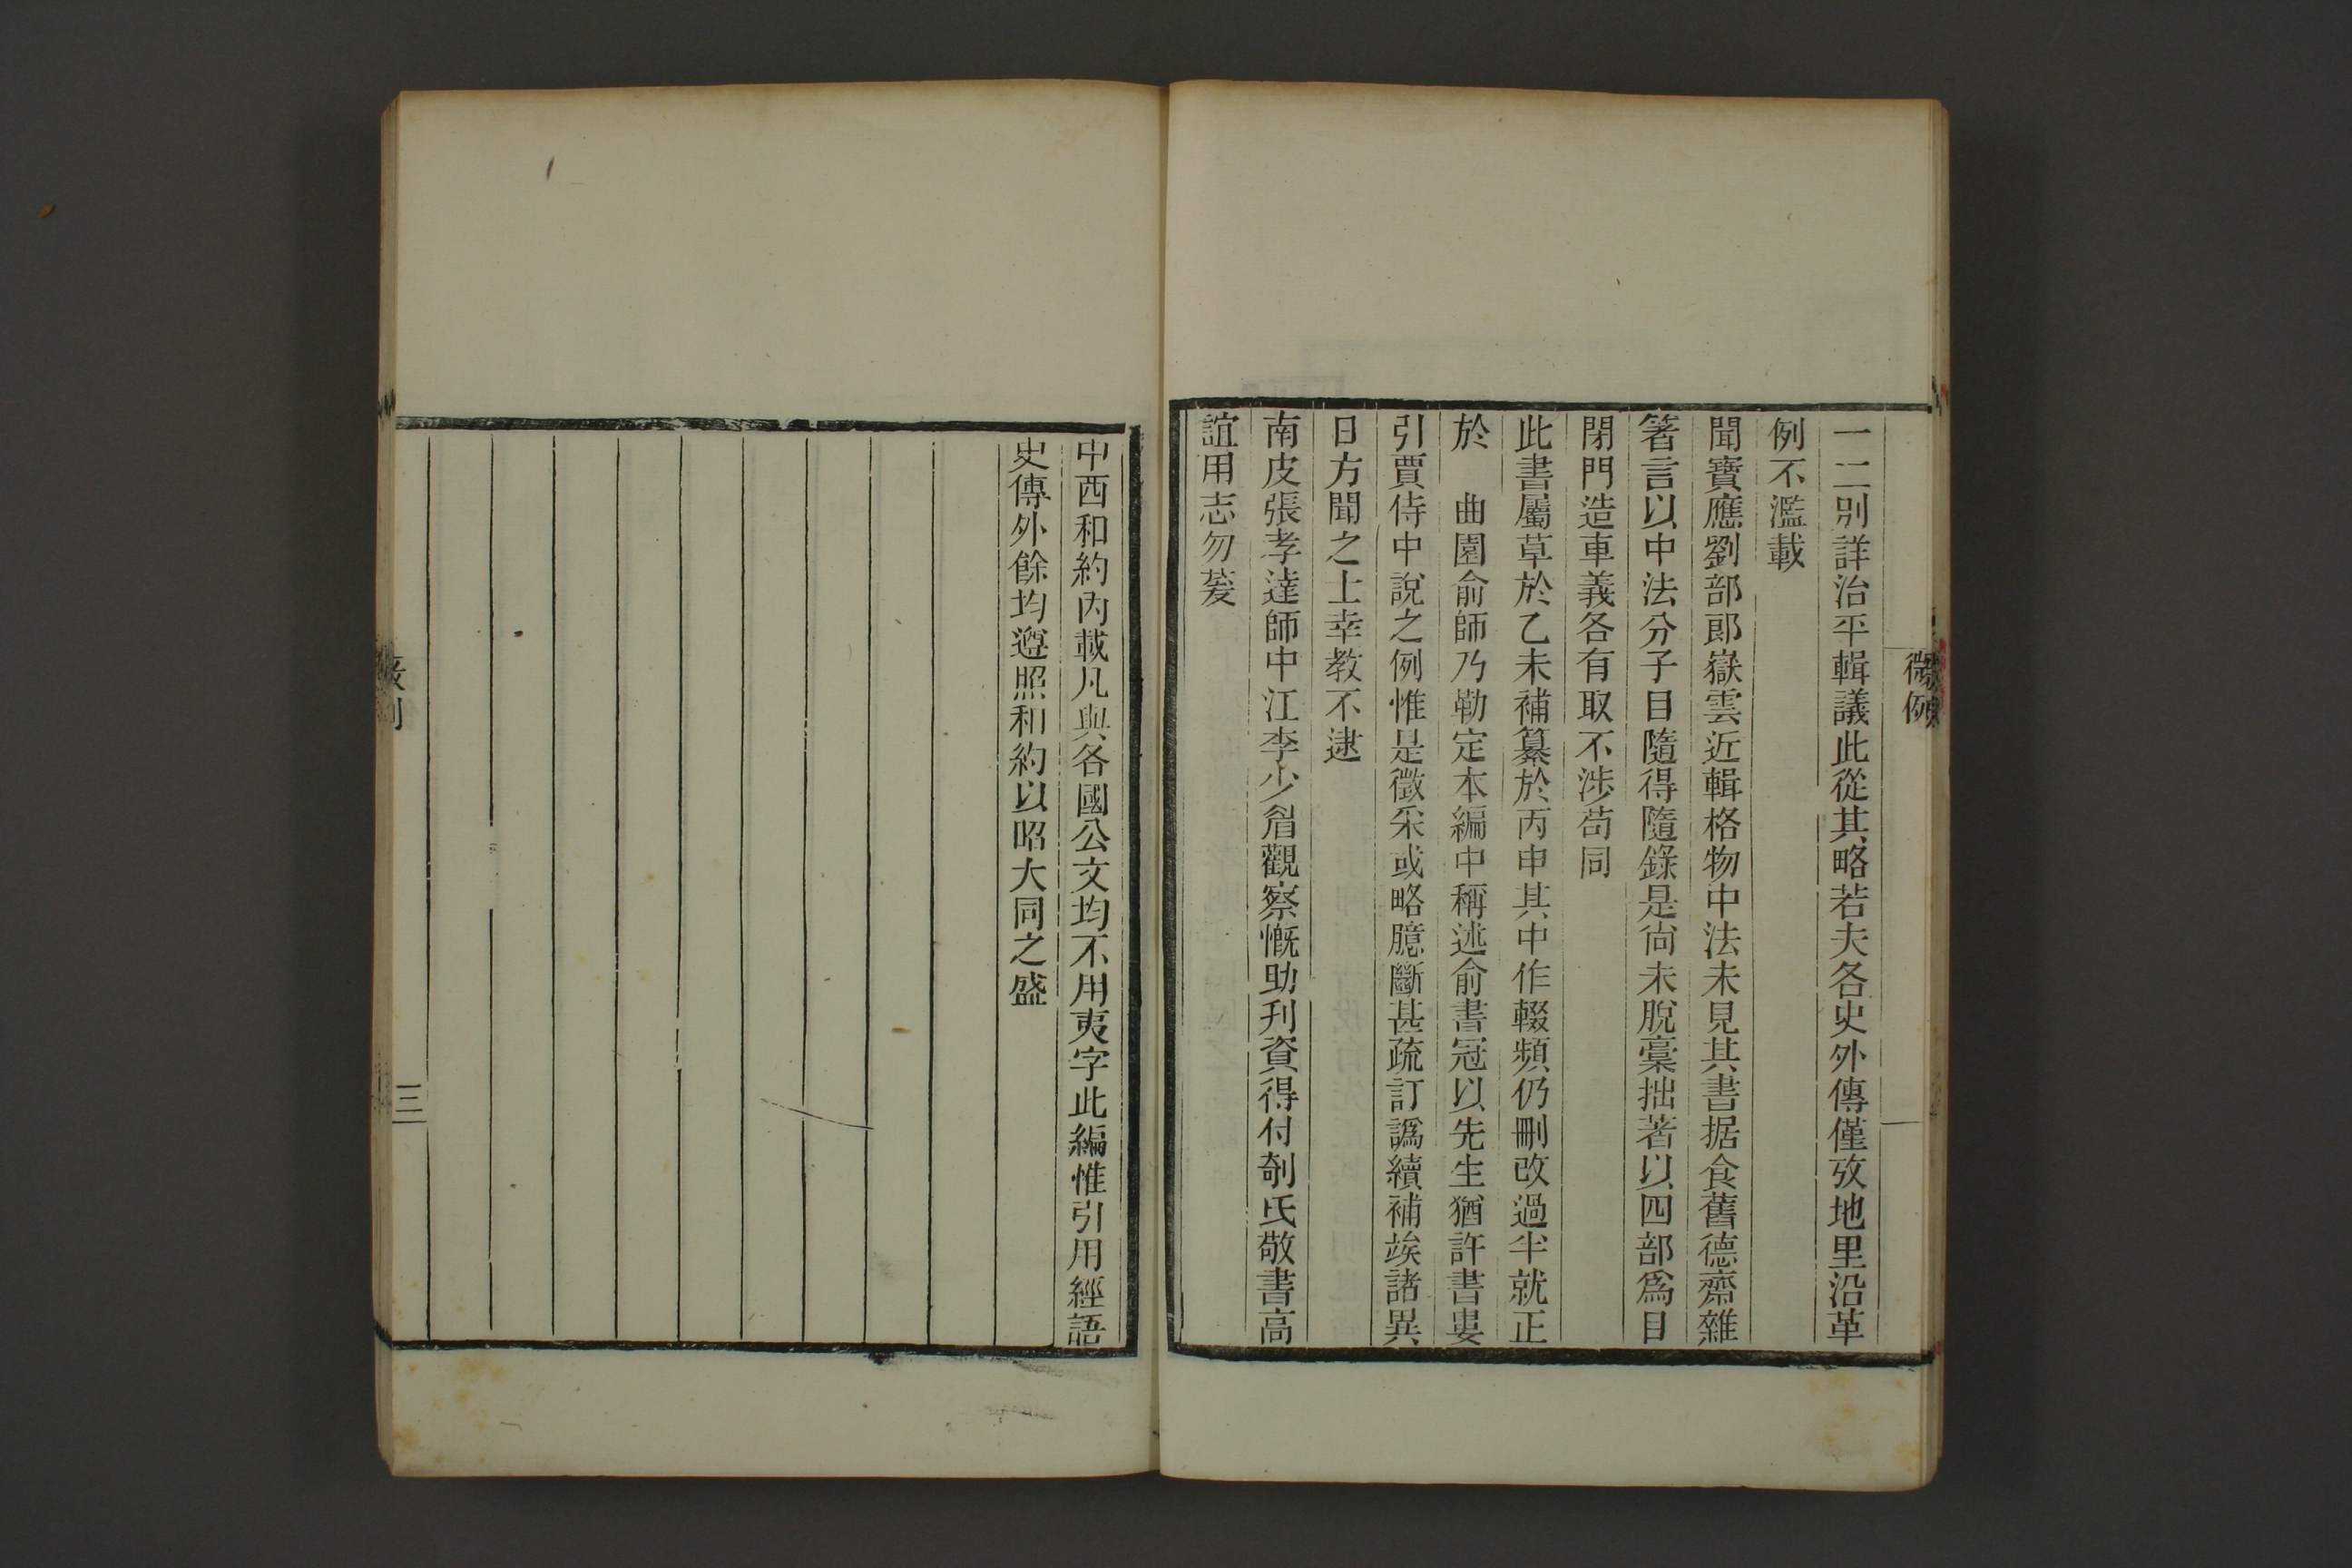 微例
一二別詳治平輯議此從其略若夫各史外傳僅攷地里沿革
例不濫載
聞寶應劉部郎嶽雲近輯格物中法未見其書据食舊德齋雜
箸言以中法分子目隨得隨錄是尙未脫稾拙著以四部爲目
閉門造車義各有取不涉苟同
此書屬草於乙未補纂於丙申其中作輟頻仍刪改過半就正
於　曲園俞師乃勒定本編中稱述俞書冠以先生猶許書婁
引賈侍中說之例惟是徵采或略臆斷甚疏訂譌續補竢諸異
日方聞之士幸敎不逮
南皮張孝達師中江李少眉觀察慨助刋資得付剞氏敬書高
誼用志勿萲
中西和約內載凡與各國公文均不用夷字此編惟引用經語
史傳外餘均遵照和約以昭大同之盛
三